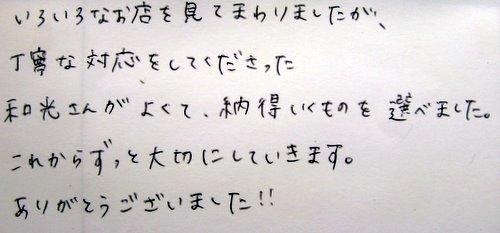 いろいろなお店を見てまわりましたが、
丁寧な対応をしてくださった
和光さんがよくて、納得いくものを選べました。
これからずっと大切にしていきます。
ありがとうございました!!